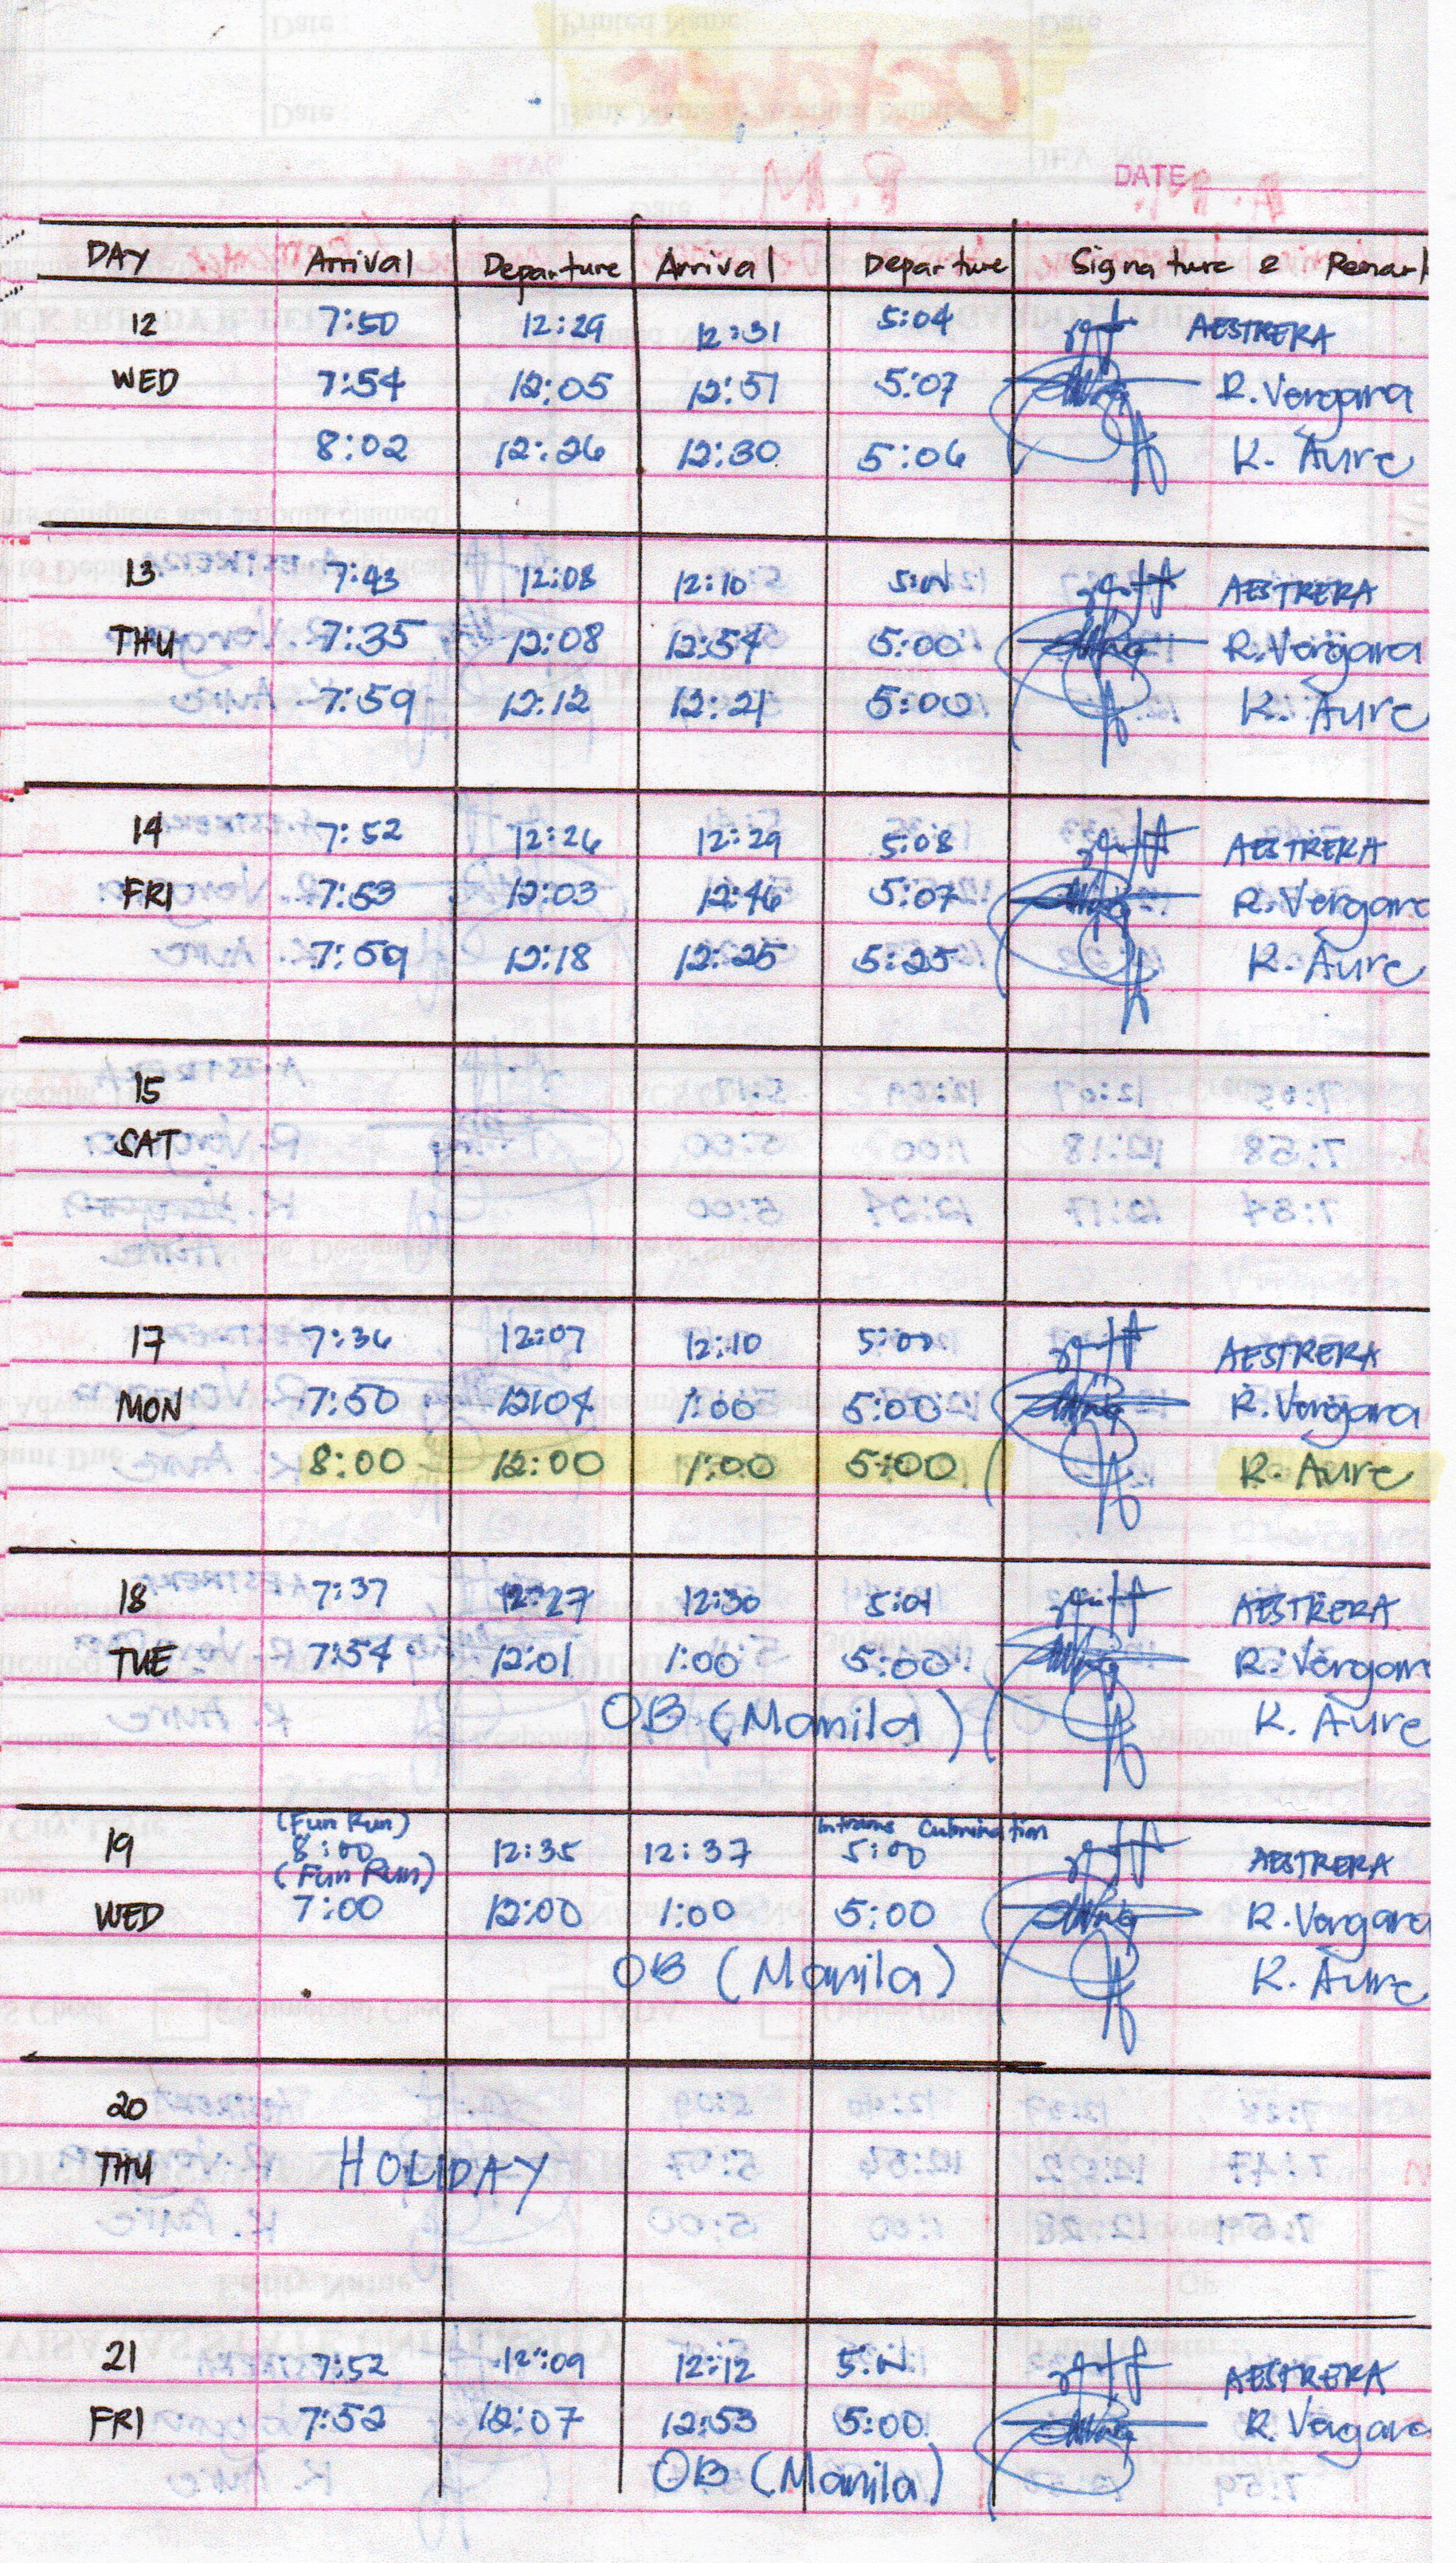 DATE
DAY Arrival Departure Arrival Departure Signature & Remark
12 7:50 12:29 12:31 5:04 AESTRERA
WED 7:54 12:05 12:57 5:07 R. Vergara
8:02 12:26 12:30 5:06 K. Aure
13 7:43 12:08 12:10 AESTRERA
THU 7:35 12:08 12:54 5:00 R. Vergara
7:59 12:12 12:21 5:00 K. Aure
14 7:52 12:26 12:29 5:08 AESTRERA
FRI 7:53 12:03 12:46 5:07 R. Vergara
7:59 12:18 12:25 5:25 K. Aure
15
SAT
17 7:36 12:07 12:10 5:00 AESTRERA
MON 7:50 12:04 1:00 5:00 R. Vergara
8:00 12:00 1:00 5:00 K. Aure
18 7:37 12:27 12:30 5:01 AESTRERA
TUE 7:54 12:01 1:00 5:00 R. Vergara
OB (Manila) K. Aure
(Fun Run) Intrams Culmination
19 8:00 12:35 12:37 5:00 AESTRERA
(Fun Run)
WED 7:00 12:00 1:00 5:00 R. Vergara
OB (Manila) K. Aure
20
THU HOLIDAY
21 7:52 12:09 12:12 AESTRERA
FRI 7:52 12:07 12:53 5:00 R. Vergara
OB (Manila)